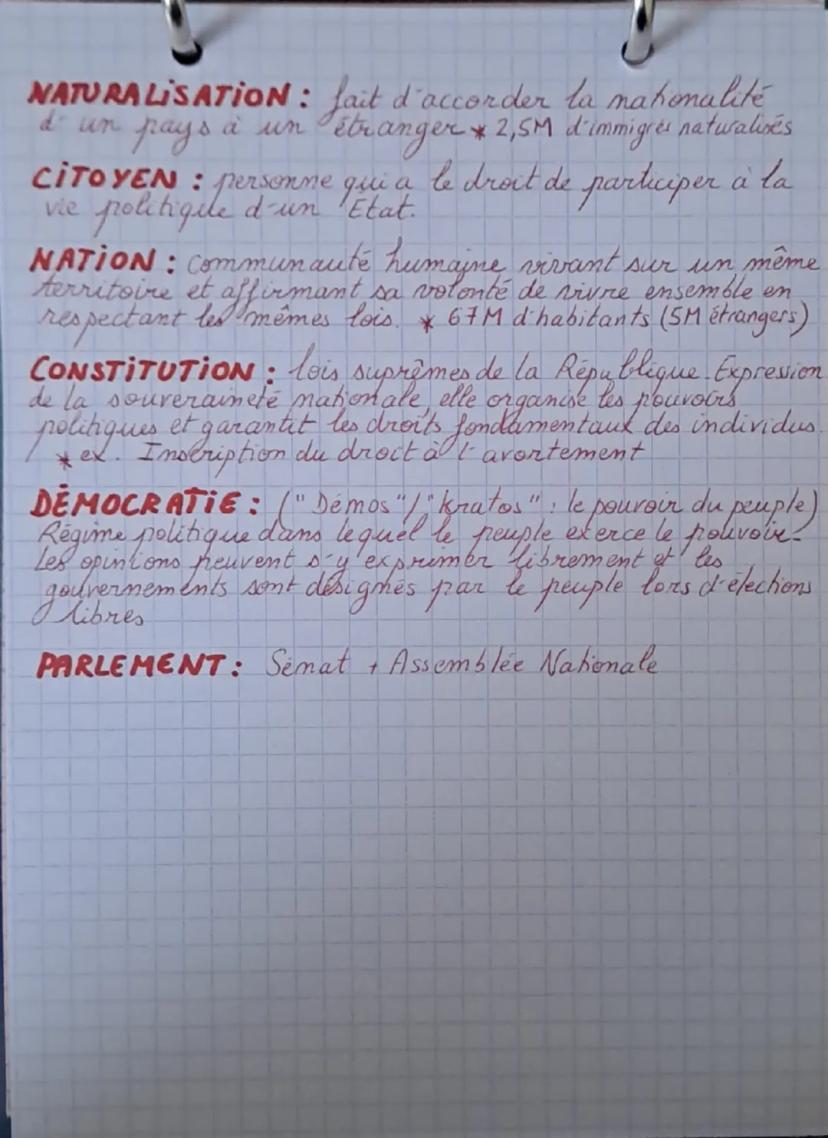 NATURALiSATiON : fait d'accorder la nationalité
d'un pays à un étranger * 2,5M d'immigrés naturalisés
CiTOYEN : personne qui a le droit de participer à la
vie politique d'un Etat.
NATiON : communauté humaine vivant sur un même
territoire et affirmant sa volonté de vivre ensemble en
respectant les mêmes lois. * 67M d'habitants (5M étrangers)
CONSTiTUTiON : lois suprêmes de la République. Expression
de la souveraineté nationale, elle organise les pouvoirs
politiques et garantit les droits fondamentaux des individus.
* ex. Inscription du droit à l'avortement
DÉMOCRATiE : ("Démos"/"Kratos" : le pouvoir du peuple)
Régime politique dans lequel le peuple exerce le pouvoir.
Les opinions peuvent s'y exprimer librement et les
gouvernements sont désignés par le peuple lors d'élections
libres
PARLEMENT : Sénat + Assemblée Nationale